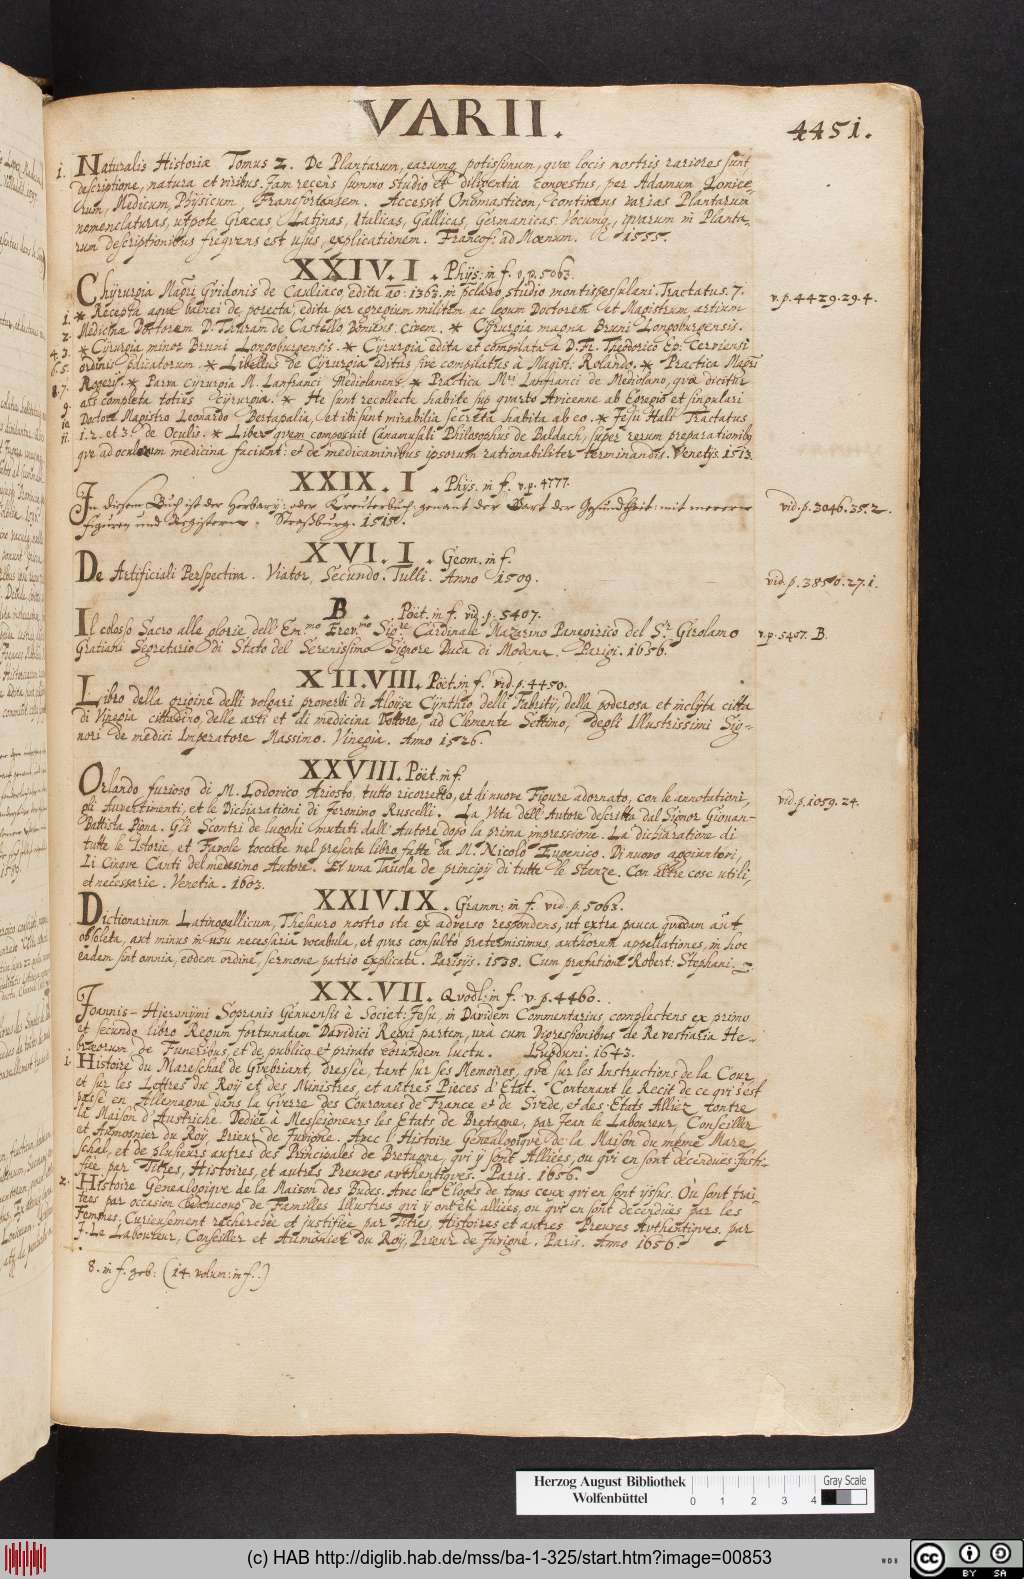 VARII.
4451.
1. Naturalis Historiæ Tomus 2. De Plantarum, earumq potissimum, quæ locis nostris rariores sunt
descriptione, natura et viribus. Jam recens summo studio et diligentia congestus, per Adamum Lonice-
rum, Medicum, Physicum, Francfortensem. Accessit Onomasticon, continens varias Plantarum
nomenclaturas, utpote Græcas Latinas, Italicas, Gallicas, Germanicas: Vocumq, quarum in Planta-
rum descriptionibus frequens est usus, explicationem. Francof: ad Mœnum. 1555.
XXIV. I. Phys: in f. v. p. 5063.
Chyrurgia Magri Gvidonis de Cauliaco, edita ao: 1363. in pclaro studio montispessulani. Tractatus. 7.
v. p. 4429. 29. 4.
1. * Recepta aquæ balnei de porecta, edita per egregium militem ac legum Doctorem et Magistrum artium
2. Medicinæ Doctorem D. Turam de Castello Boniens. civem. * Cyrurgia magna Bruni Longoburgensis.
4. 3. * Cyrurgia minor Bruni Longoburgensis. * Cyrurgia edita et compilata à D. Fr. Theodorico Ep: Cerviensi
6. 5. ordinis pdicatorum. * Libellus de Cyrurgia editus sive compilatus à Magist. Rolando. * Practica Magri
8. 7. Rogerij. * Parva Cyrurgia M. Lanfranci Mediolanens. * Practica Mri Lanfranci de Mediolano, quæ dicitur
9. ars completa totius cyrurgiæ. * He sunt recollecte habite sup quarto Avicenne ab Egregio et singulari
10. Doctore Magistro Leonardo Bertapalia, et ibi sunt mirabilia secreta habita ab eo. * Jesu Hali Tractatus
11. 1. 2. et 3. de Oculis. * Liber quem composuit Canamusali Philosophus de Baldach, super rerum preparationibq
que ad oculorum medicina faciunt: et de medicaminibus ipsorum rationabiliter terminandis. Venetijs. 1513.
XXIX. I. Phys. in f. v. p. 4777.
In diesem Buch ist der Herbary: oder Kreüterbuch: genant der Gart der Gesundtheit: mit merern
vid. p. 3046. 35. 2.
figuren und Registern. Straßburg. 1515.
XVI. I. Geom. in f.
De Artificiali Perspectiva. Viator, Secundo. Tulli. Anno 1509.
vid. p. 3850. 27. 1.
B. Poët. in f. vid. p. 5407.
Il colosso Sacro alle glorie dell' Em.mo Rev.mo Sig.re Cardinale Mazarino Panegirico del S.r Girolamo
v. p. 5407. B.
Gratiani Segretario di Stato del Serenissimo Signore Duca di Modena. Parigi. 1656.
XII. VIII. Poët. in f. vid. p. 4450.
Libro della origine delli volgari proverbi di Aloyse Cynthio delli Fabritij, della poderosa et inclyta citta
di Vinegia cittadino, delle arti et di medicina Dottore, ad Clemente Settimo, degli Illustrissimi Sig-
nori de medici Imperatore Massimo. Vinegia. Anno 1526.
XXVIII. Poët. in f.
Orlando furioso di M. Lodovico Ariosto. tutto ricorretto, et di nuove Figure adornato, con le annotationi,
vid. p. 1059. 24.
gli Avvertimenti, et le Dichiarationi di Jeronimo Ruscelli. La Vita dell' Autore descritta dal Signor Giovan-
Battista Pigna. Gli Scontri de luoghi mutati dall' Autore dopo la prima impressione. La dichiaratione di
tutte le Istorie, et Favole toccate nel presente libro fatte da M. Nicolò Eugenico. Di nuovo aggiuntovi,
Li Cinque Canti del medesimo Autore. Et una Tavola de principij di tutte le Stanze. Con altre cose utili,
et necessarie. Venetia. 1603.
XXIV. IX. Gramm: in f. vid. p. 5063.
Dictionarium Latinogallicum, Thesauro nostro ita ex adverso respondens, ut extra pauca quædam aut
obsoleta, aut minus in usu necessaria vocabula, et quæ consultò prætermisimus, authorum appellationes, in hoc
eadem sint omnia, eodem ordine, sermone patrio explicata. Parisijs. 1538. Cum præfatione Robert: Stephani.
XX. VII. Qvodl: in f. v. p. 4460.
Joannis-Hieronymi Sopranis Genuensis è Societ: Jesu, in Davidem Commentarius complectens ex primo
et secundo libro Regum fortunatam Davidici Regni partem, unà cum Digressionibus de Re vestiaria He-
bræorum de Funeribus, et de publico et privato eorundem luctu. Lugduni. 1643.
1. Histoire du Mareschal de Gvebriant, dressée, tant sur ses Memoires, que sur les Instructions de la Cour
et sur les Lettres du Roy et des Ministres, et autres Pieces d'Etat. Contenant le Recit de ce qui s'est
passé en Allemagne dans la Gverre des Couronnes de France et de Svede, et des Etats Alliez contre
la Maison d'Austriche. Dediée à Messeigneurs les Etats de Bretagne, par Jean le Laboureur, Conseiller
et Aumosnier du Roy, Prieur de Juvigné. Avec l'Histoire Genealogique de la Maison du même Mare
schal, et de plusieurs autres des Principales de Bretagne, qui y sont Alliées, ou qui en sont décendues Justi-
fiée par Titres, Histoires, et autres Preuves avthentiqves. Paris. 1656.
2. Histoire Genealogiqve de la Maison des Budes. Avec les Eloges de tous ceux qvi en sont yssus. Ou sont trai-
tées par occasion beaucoup de Familles Illustres qvi y ont été alliées, ou qvi en sont décendues par les
Femmes, Curieusement recherchée et justifiée par Titres, Histoires et autres Preuves Avthentiqves, par
J. Le Laboureur, Conseiller et Aumônier du Roy, Prieur de Juvigné. Paris. Anno 1656.
8. in f. geb: (14. volum: in f.)
Herzog August Bibliothek
Wolfenbüttel
0 1 2 3 4
Gray Scale
(c) HAB http://diglib.hab.de/mss/ba-1-325/start.htm?image=00853
WDB
cc BY SA